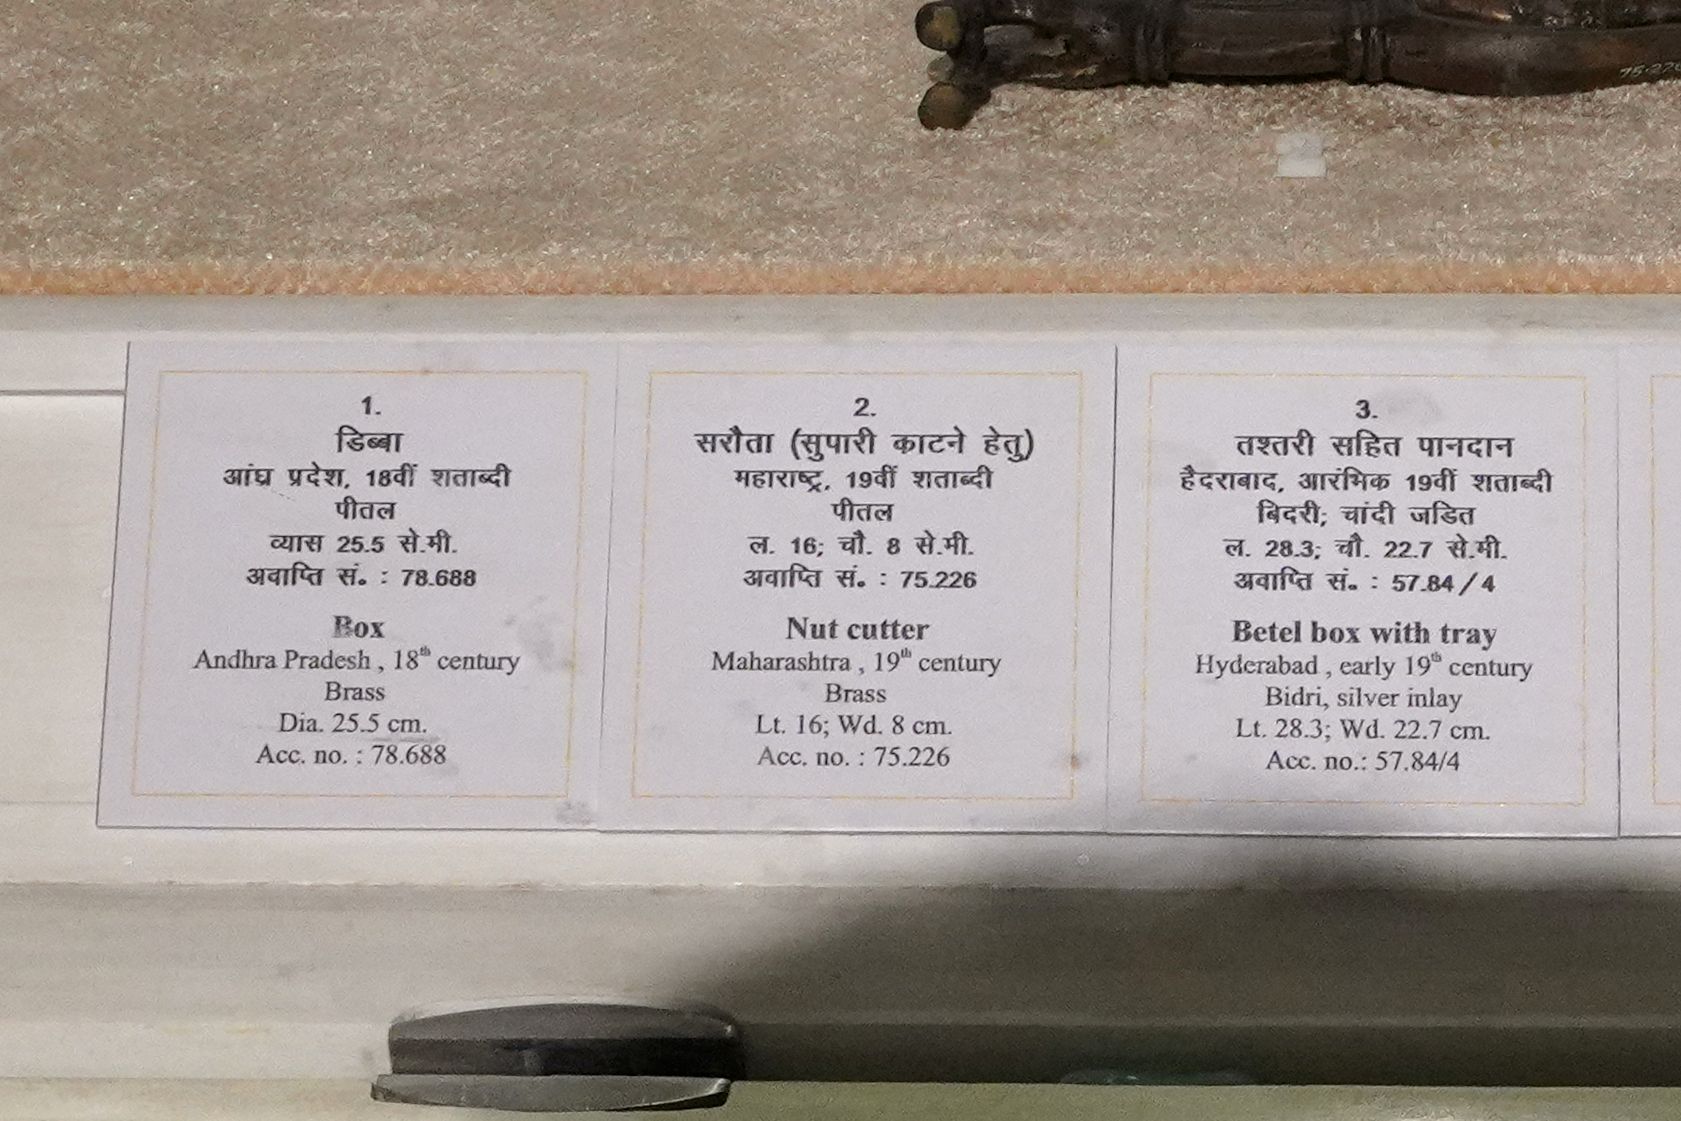 1.
डिब्बा
आंध्र प्रदेश, 18वीं शताब्दी
पीतल
व्यास 25.5 से.मी.
अवाप्ति सं. : 78.688
Box
Andhra Pradesh , 18th century
Brass
Dia. 25.5 cm.
Acc. no. : 78.688
2.
सरौता (सुपारी काटने हेतु)
महाराष्ट्र, 19वीं शताब्दी
पीतल
ल. 16; चौ. 8 से.मी.
अवाप्ति सं. : 75.226
Nut cutter
Maharashtra , 19th century
Brass
Lt. 16; Wd. 8 cm.
Acc. no. : 75.226
3.
तश्तरी सहित पानदान
हैदराबाद, आरंभिक 19वीं शताब्दी
बिदरी; चांदी जडित
ल. 28.3; चौ. 22.7 से.मी.
अवाप्ति सं. : 57.84/4
Betel box with tray
Hyderabad , early 19th century
Bidri, silver inlay
Lt. 28.3; Wd. 22.7 cm.
Acc. no.: 57.84/4